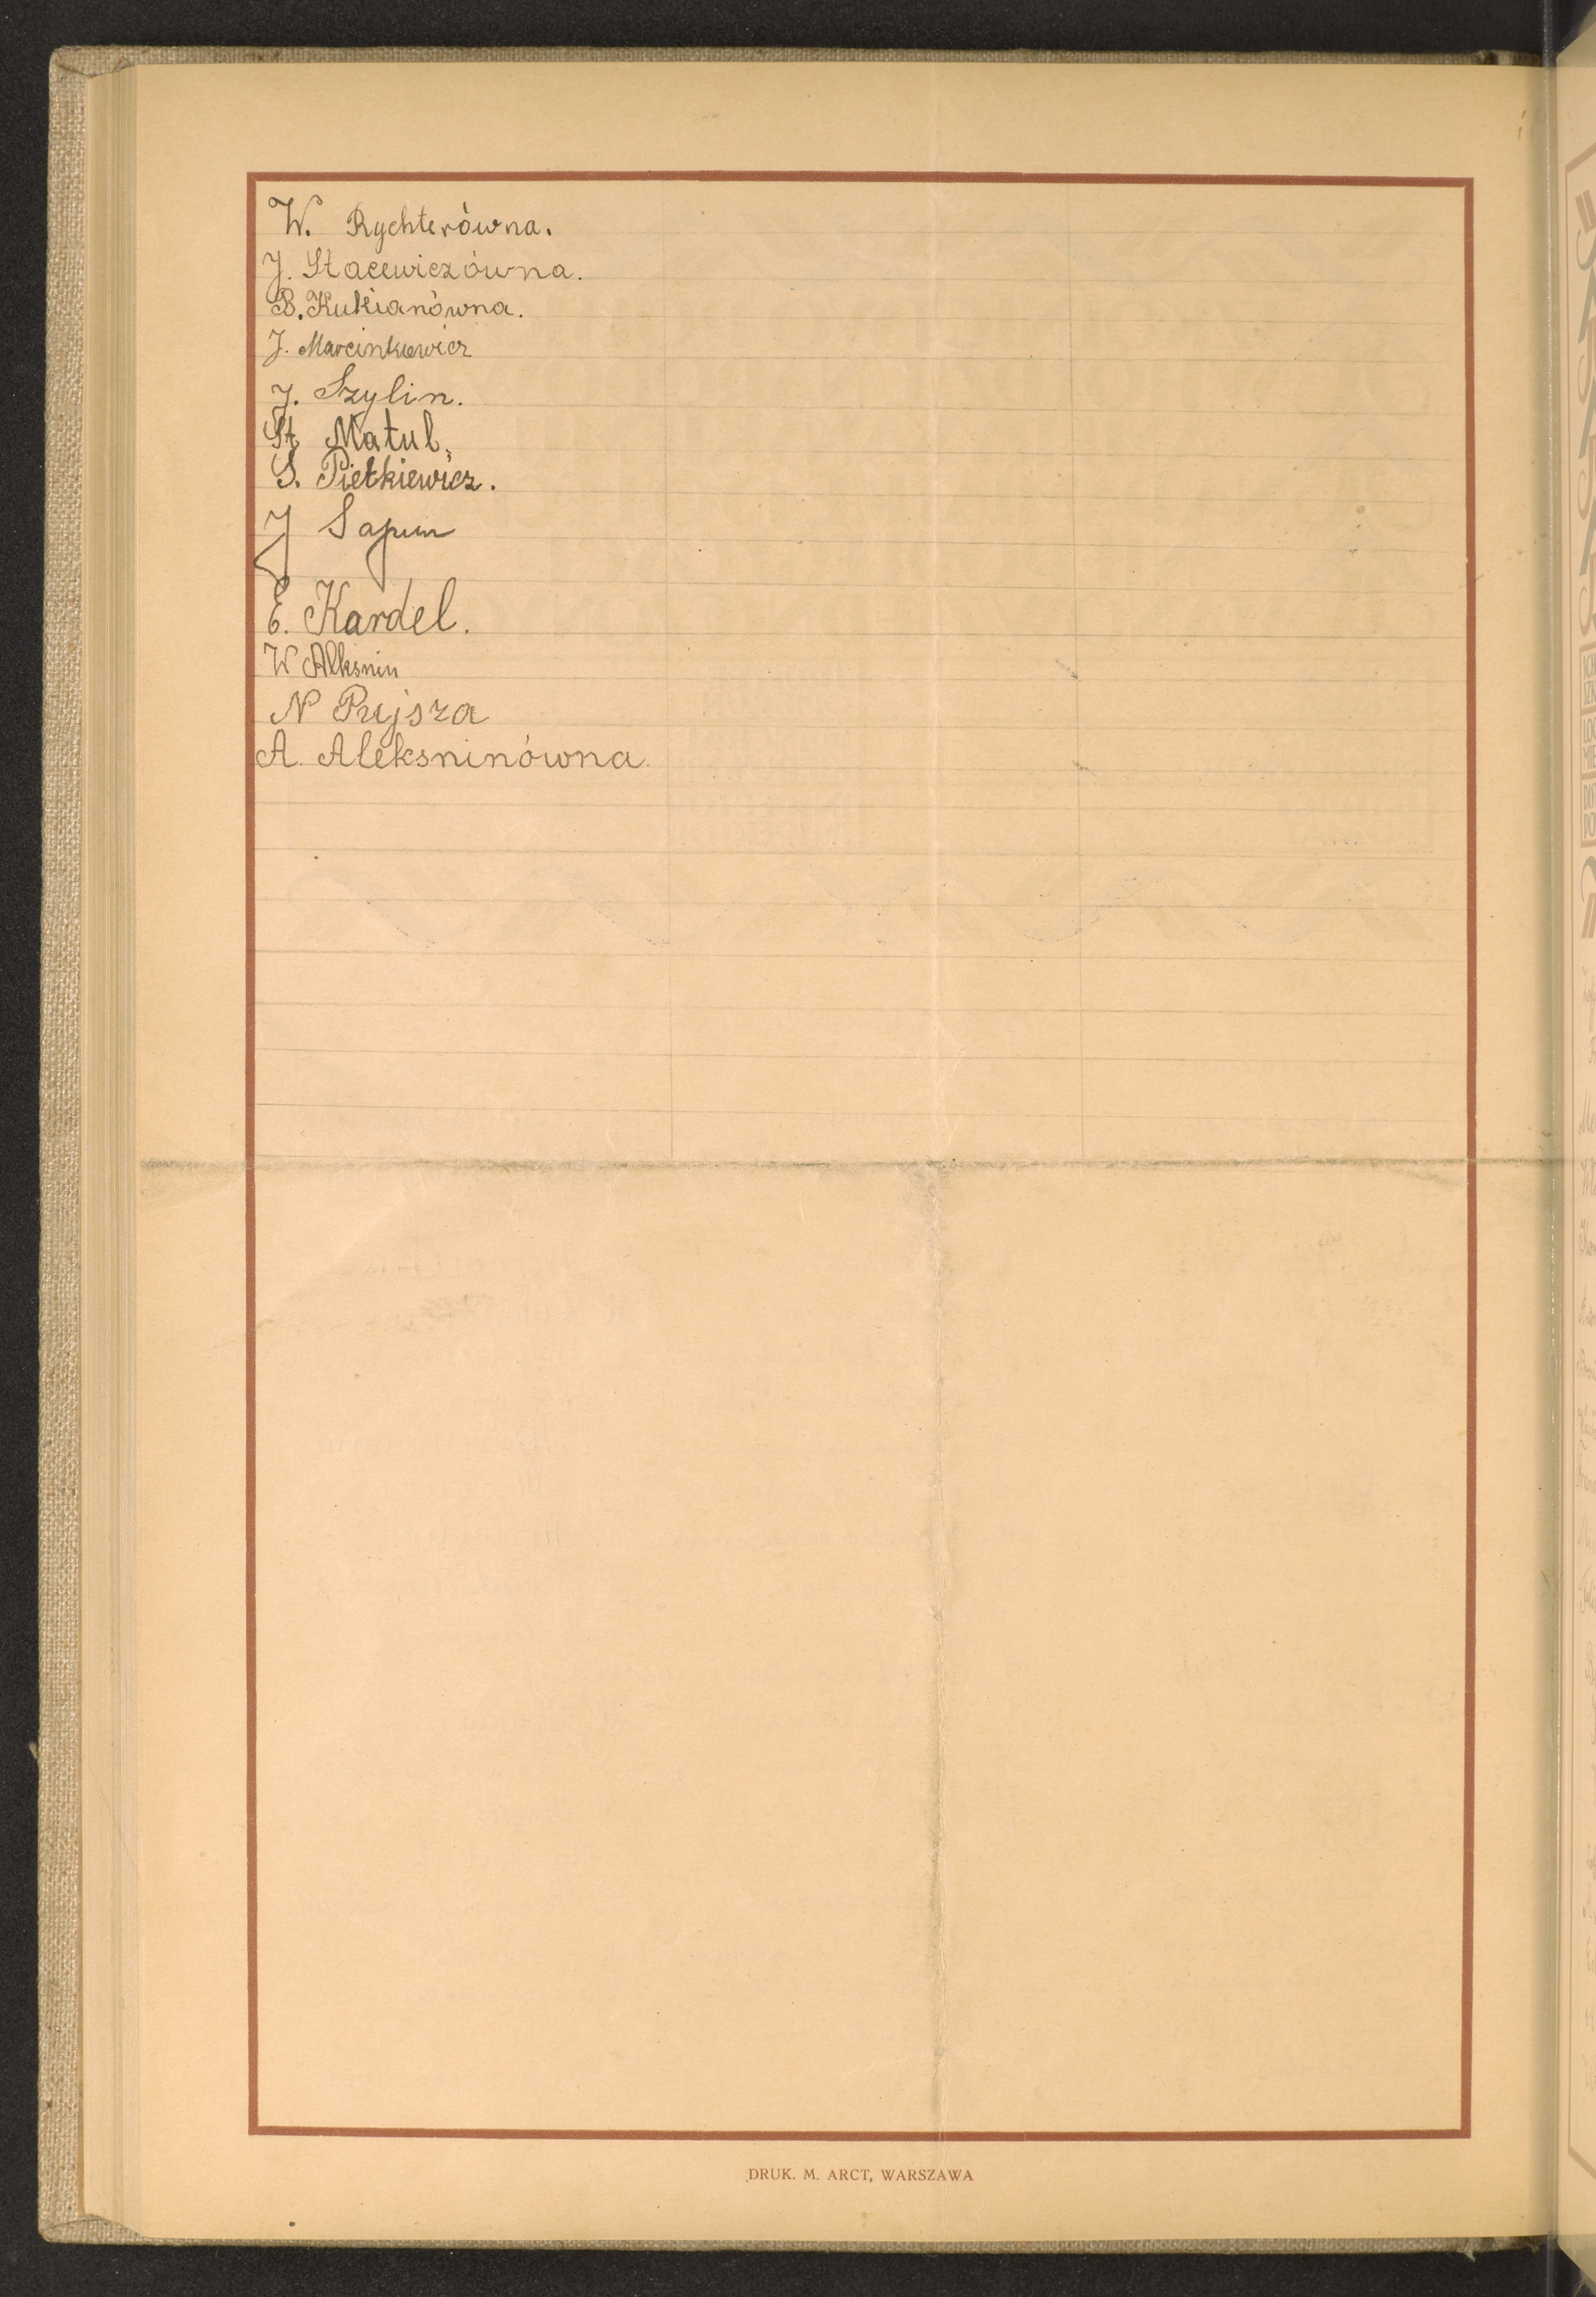 W. Rychterówna.
J. Stacewiczówna.
B. Kukianówna.
J. Marcinkiewicz
J. Szylin.
St Matul.
S. Pietkiewicz.
J Sapun
E. Kardel.
W Alksnin
N Pujsza
A. Aleksninówna.
DRUK. M. ARCT, WARSZAWA